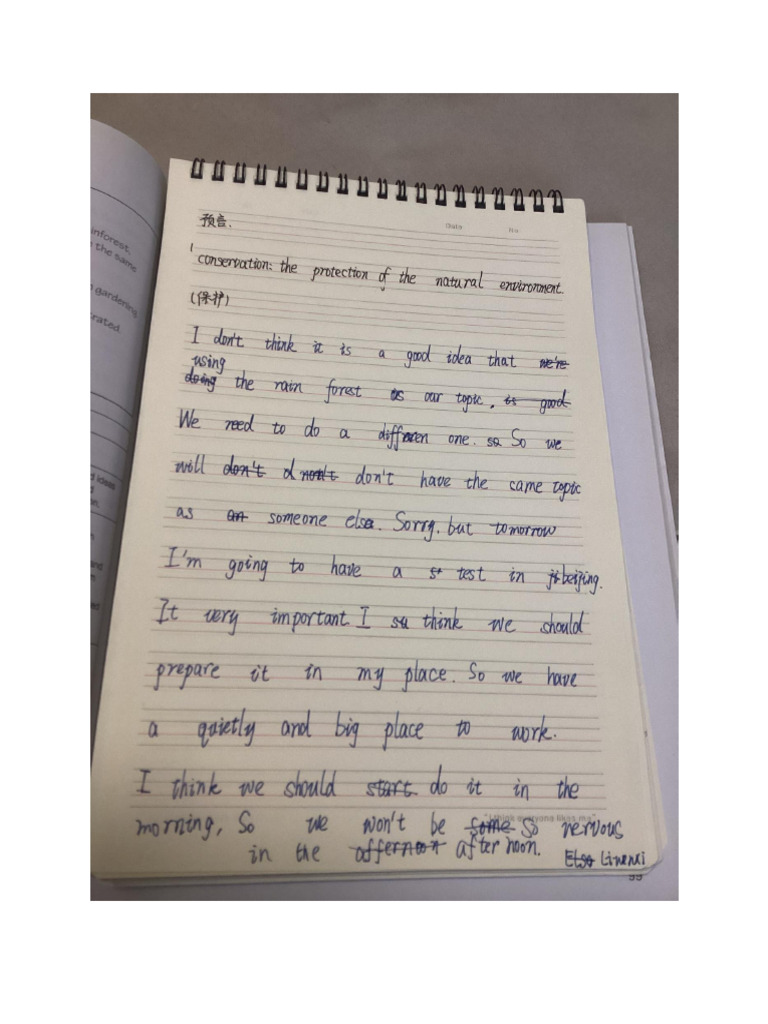 预告.
Date No
conservation: the protection of the natural environment.
(保护)
I don't think it is a good idea that we're
using
doing the rain forest as our topic. is good
We need to do a differen one. so So we
will don't d don't have the came topic
as an someone else. Sorry. but tomorrow
I'm going to have a st test in ji beijing.
It very important I su think we should
prepare it in my place. So we have
a quietly and big place to work.
I think we should start do it in the
"I think everyone likes me"
morning, So we won't be some so nervous
in the affernoon after noon. Elsa Linxi
inforest.
the same
gardening
trated.
d ideas
and
59